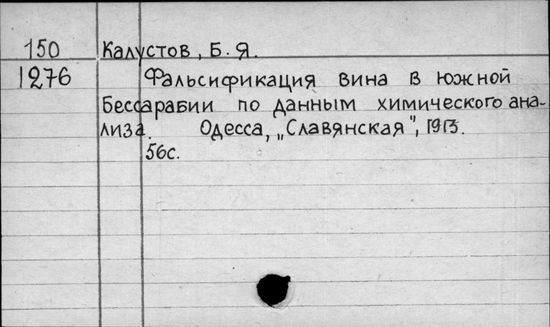 150 Калустов, Б. Я.
1276 Фальсификация вина в южной
Бессарабии по данным химического ана-
лиза. Одесса, „Славянская", 1913.
56с.